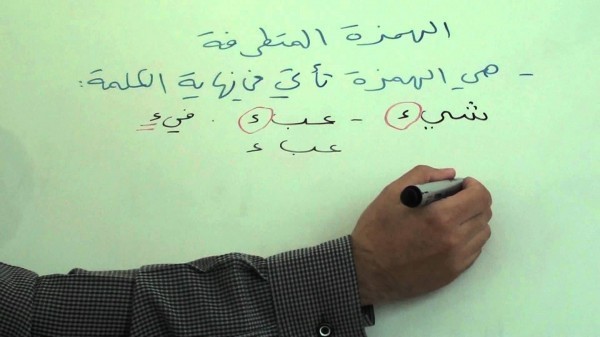 الهمزة المتطرفة
- هي الهمزة تأتي في نهاية الكلمة:
شيء - عبء . فيء
عباء